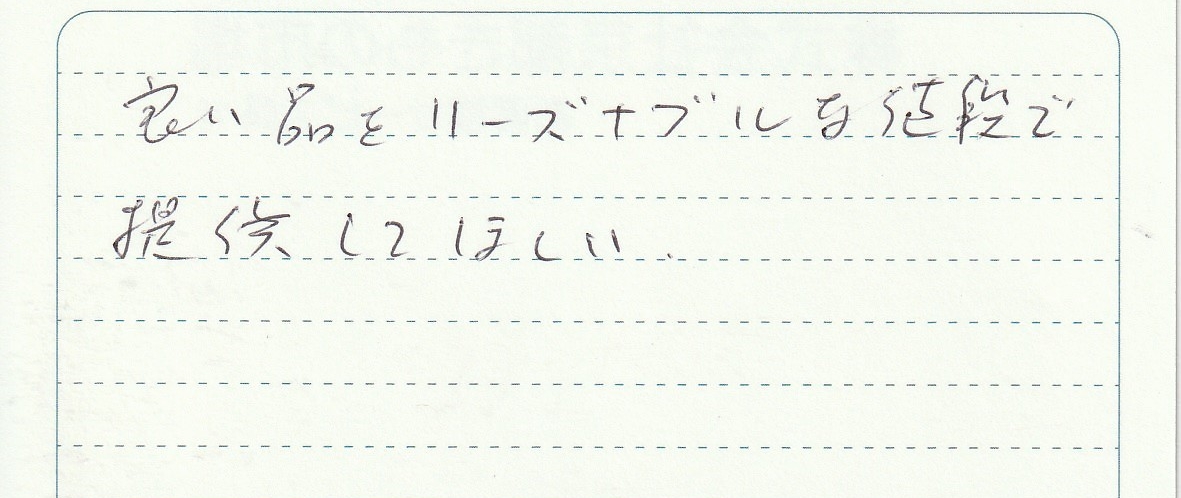 良い品をリーズナブルな値段で
提供してほしい.